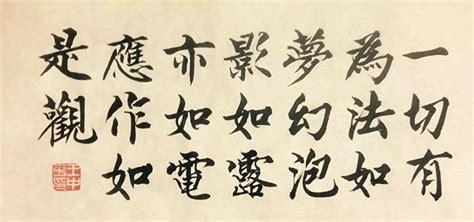 一切有
為法如
夢幻泡
影如露
亦如電
應作如
是觀